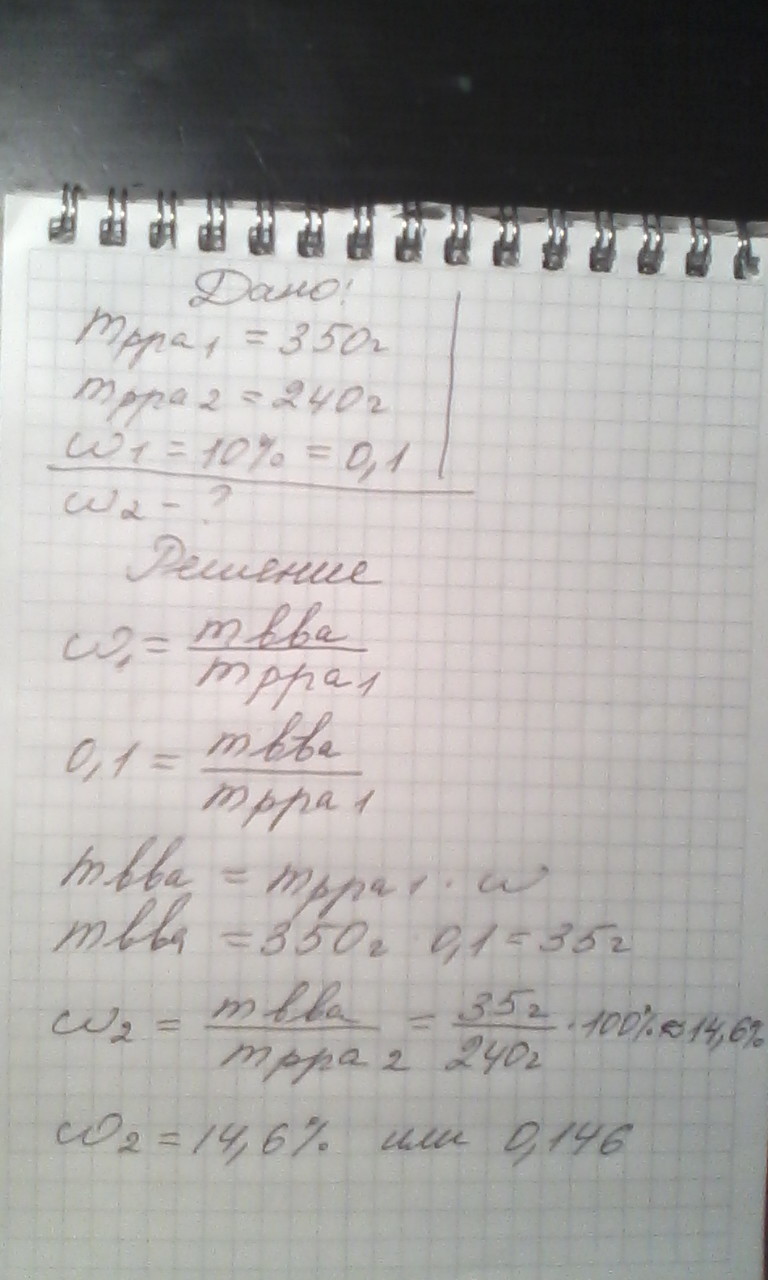 Дано:
mрра1 = 350г
mрра2 = 240г
ω1 = 10% = 0,1
ω2 - ?
Решение
ω1 = mвва / mрра1
0,1 = mвва / mрра1
mвва = mрра1 · ω
mвва = 350г · 0,1 = 35г
ω2 = mвва / mрра2 = 35г / 240г · 100% ≈ 14,6%
ω2 = 14,6% или 0,146